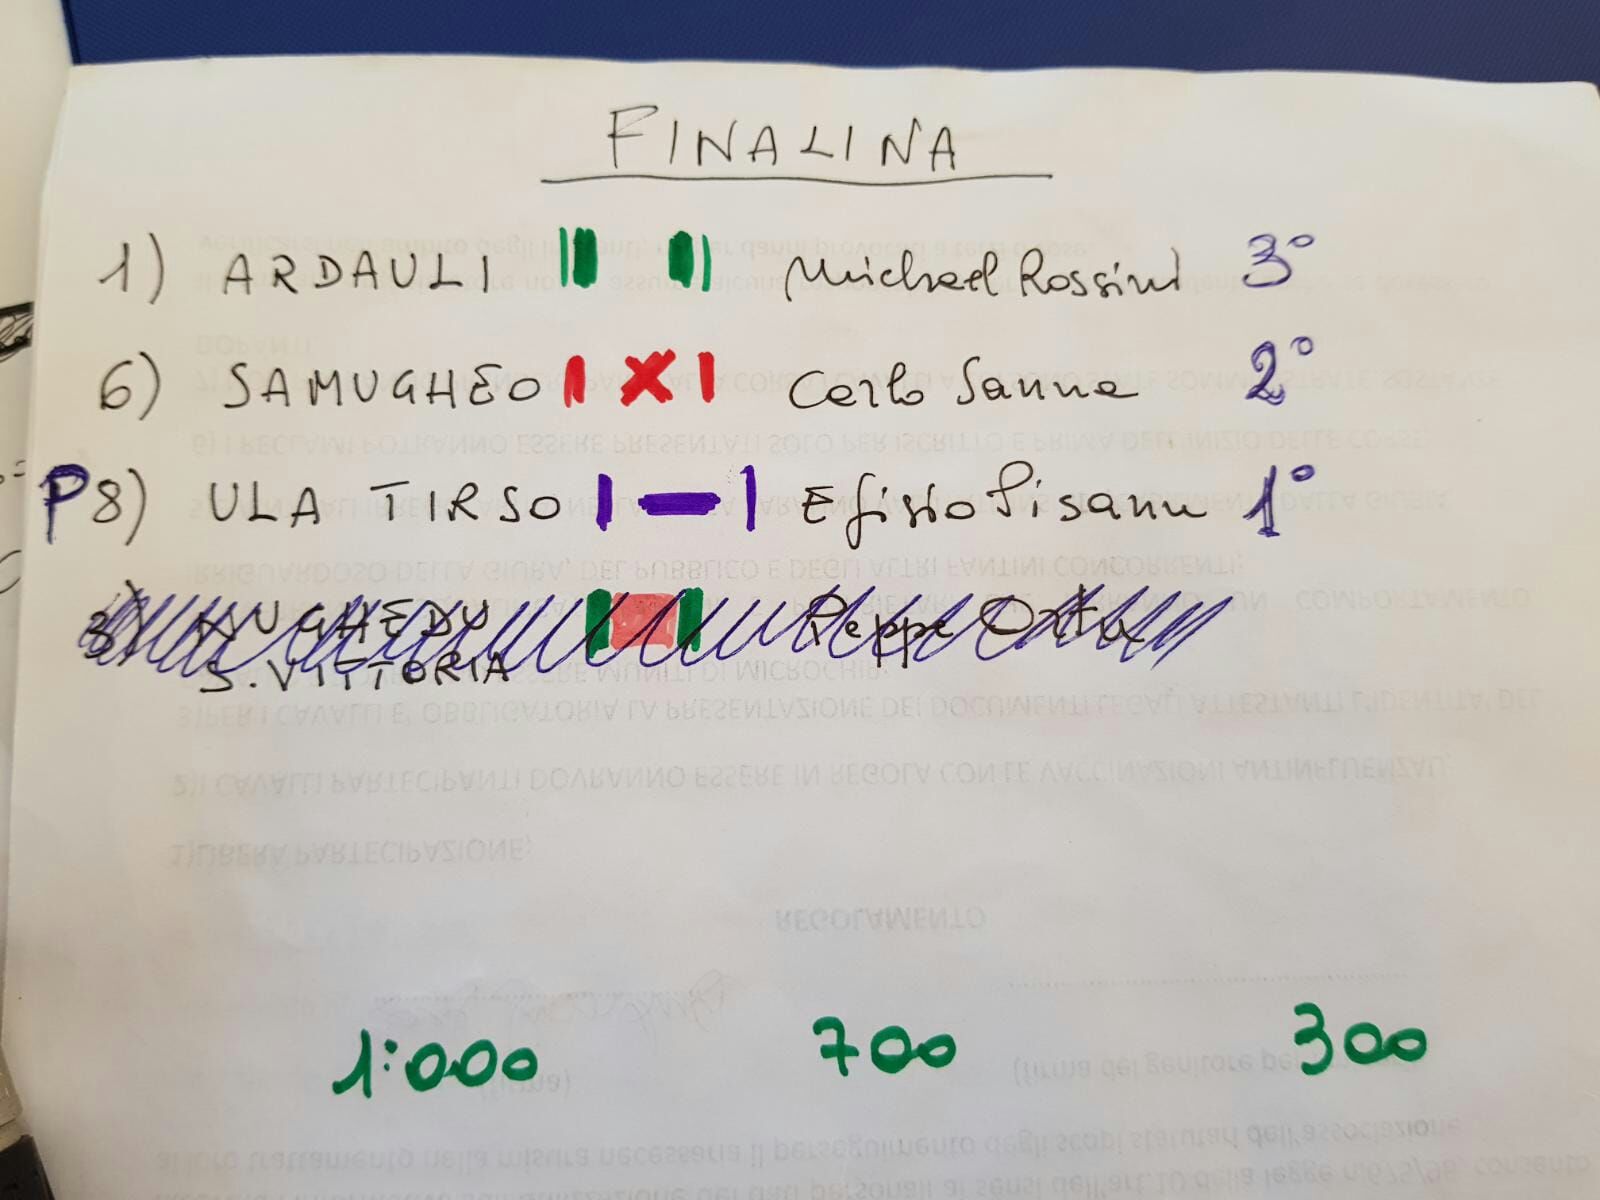 FINALINA
1) ARDAULI Michael Rossini 3°
6) SAMUGHEO Carlo Sanna 2°
P 8) ULA TIRSO Efisio Pisanu 1°
3) NUGHEDU Peppe
S. VITTORIA
1:000 700 300